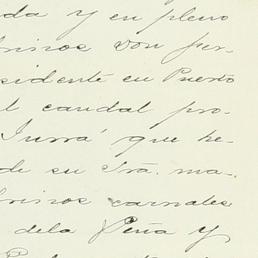 da y en pleno
brinos don fer-
sidente en Puerto
l caudal pro-
Iurrá que he-
de su Sra. ma-
brinos carnales
dela Peña y